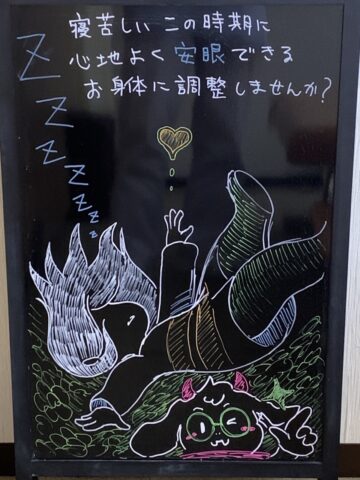 寝苦しいこの時期に
心地よく安眠できる
お身体に調整しませんか?
Z
Z
Z
Z
Z
Z
Z
Z